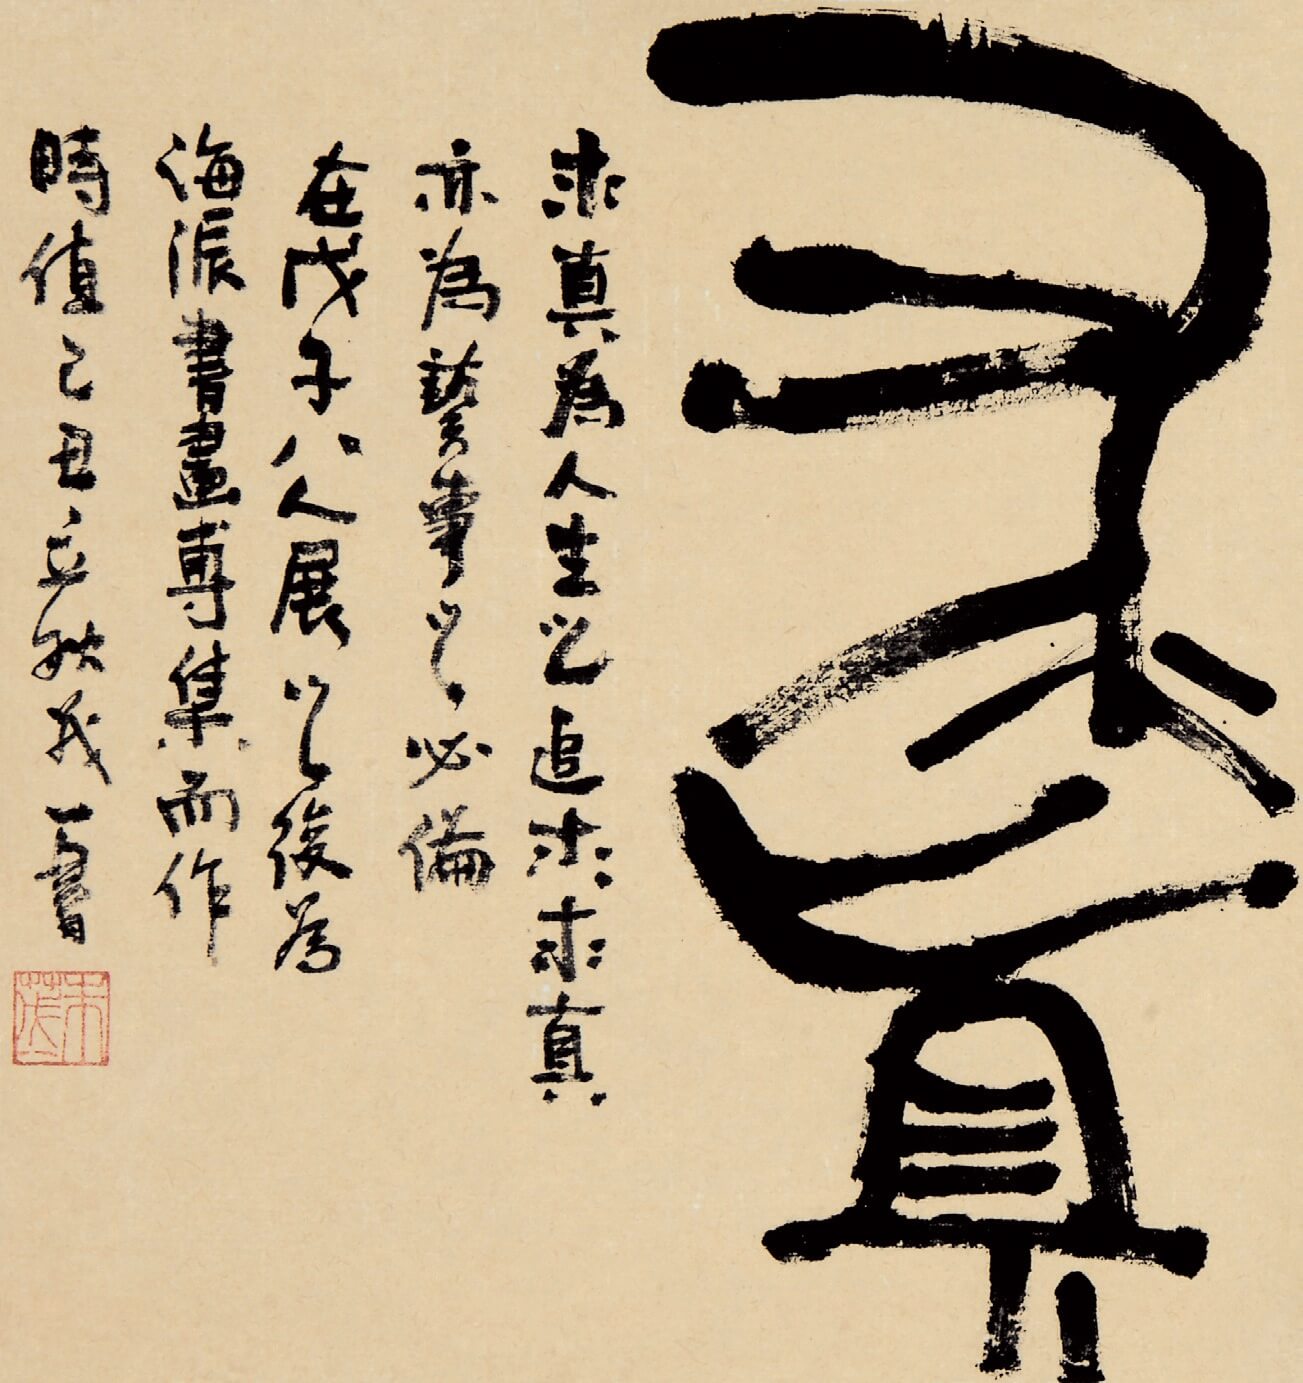 求真
求真為人生之追求求真
亦為藝事之必備
在戊子八人展之後為
海派書畫專集而作
時值己丑立秋我一書